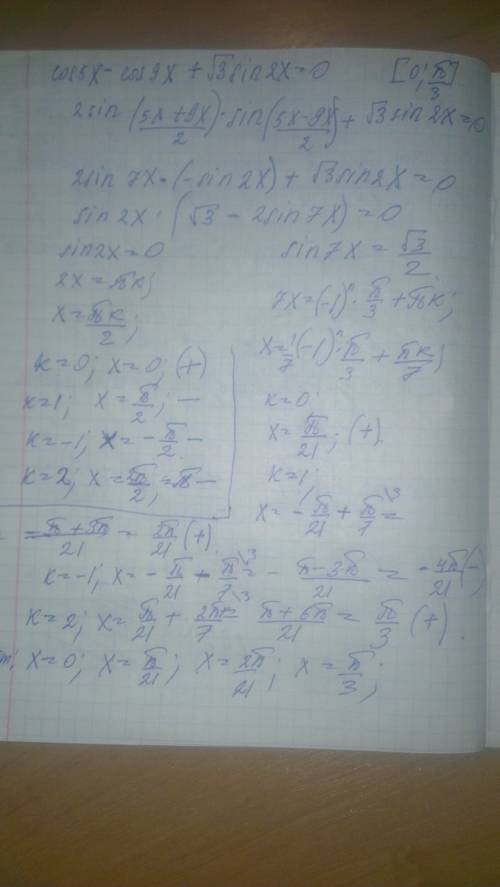 cos5x - cos9x + √3 sin2x = 0 [0; π/3]
2sin (5x + 9x)/2 · sin (5x - 9x)/2 + √3 sin2x = 0
2sin 7x · (-sin 2x) + √3 sin2x = 0
sin 2x · (√3 - 2sin 7x) = 0
sin2x = 0
2x = πk;
x = πk/2;
k = 0; x = 0; (+)
k = 1; x = π/2; -
k = -1; x = -π/2 -
k = 2; x = 2π/2; = π -
sin 7x = √3/2
7x = (-1)ⁿ · π/3 + πk;
x = 1/7 (-1)ⁿ · π/3 + πk/7;
k = 0;
x = π/21; (+)
k = 1;
x = -π/21 + π/7 \3 =
= -π + 3π/21 = 2π/21 (+)
k = -1; x = -π/21 - π/7 \3 = -π - 3π/21 = -4π/21 (-)
k = 2; x = π/21 + 2π/7 \3 = π + 6π/21 = π/3 (+)
x = 0; x = π/21; x = 2π/21; x = π/3;